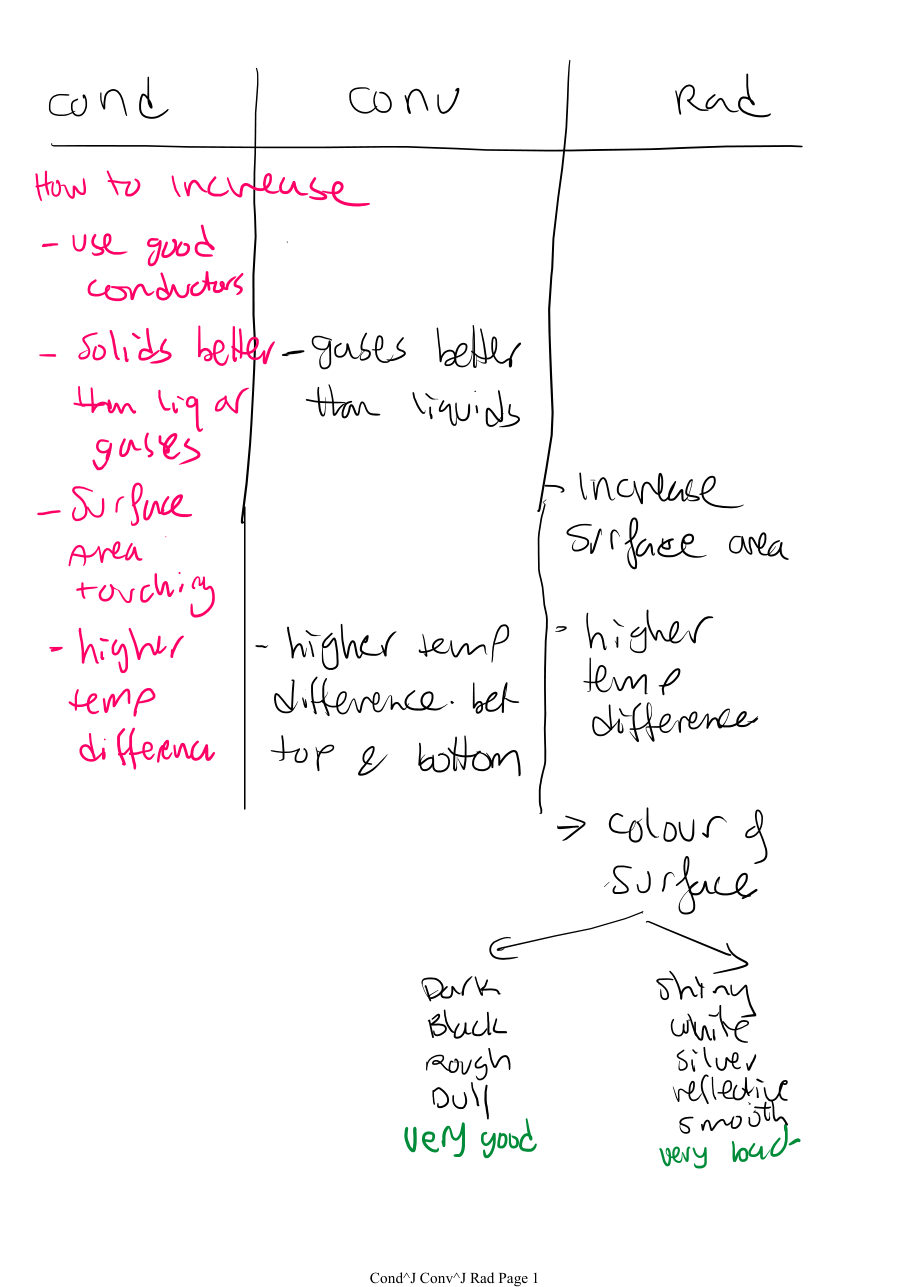 cond conv Rad
How to increase
- use good
conductors
- Solids better
than liq or
gases
- Surface
Area
touching
- higher
temp
difference
- gases better
than liquids
- higher temp
difference. bet
top & bottom
- increase
surface area
- higher
temp
difference
→ colour of
surface
Dark
Black
Rough
Dull
very good
shiny
white
silver
reflective
smooth
very bad
Cond^J Conv^J Rad Page 1